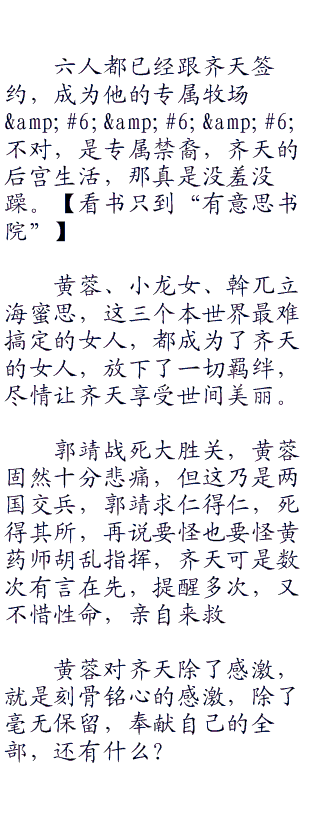 六人都已经跟齐天签
约，成为他的专属牧场
&amp; #6; &amp; #6; &amp; #6;
不对，是专属禁裔，齐天的
后宫生活，那真是没羞没
躁。【看书只到“有意思书
院”】
黄蓉、小龙女、斡兀立
海蜜思，这三个本世界最难
搞定的女人，都成为了齐天
的女人，放下了一切羁绊，
尽情让齐天享受世间美丽。
郭靖战死大胜关，黄蓉
固然十分悲痛，但这乃是两
国交兵，郭靖求仁得仁，死
得其所，再说要怪也要怪黄
药师胡乱指挥，齐天可是数
次有言在先，提醒多次，又
不惜性命，亲自来救
黄蓉对齐天除了感激，
就是刻骨铭心的感激，除了
毫无保留，奉献自己的全
部，还有什么？